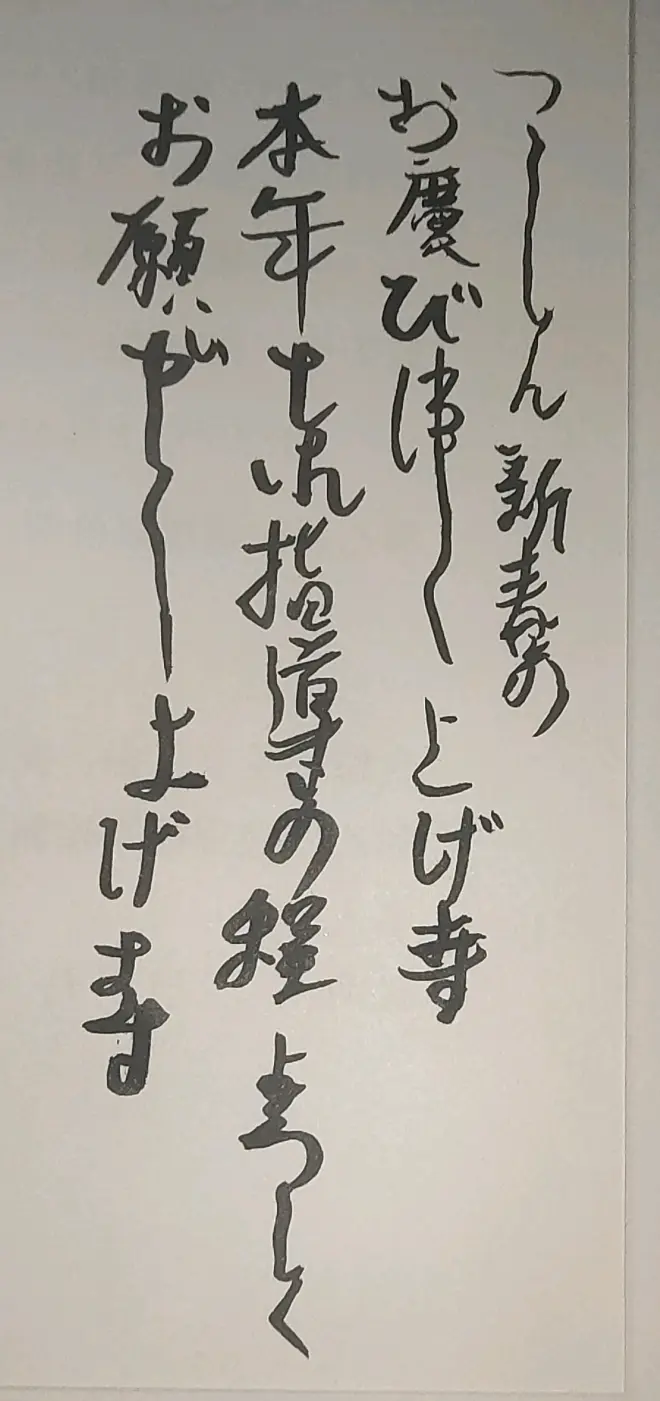 つゝしんで新春の
お慶び申し上げます
本年も御指導の程よろしく
お願い申し上げます